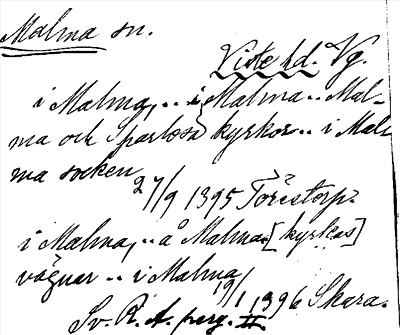 Malma sn.
Viste hd. Vg.
i Malma, .. i Malma .. Mal-
ma och Sparlösa kyrkor .. i Mal-
ma socken
27/9 1395 Toristorp.
i Malma, .. å Malma [kyrkas]
vägnar .. i Malma
19/1 1396 Skara.
Sv. R. A. perg. II.